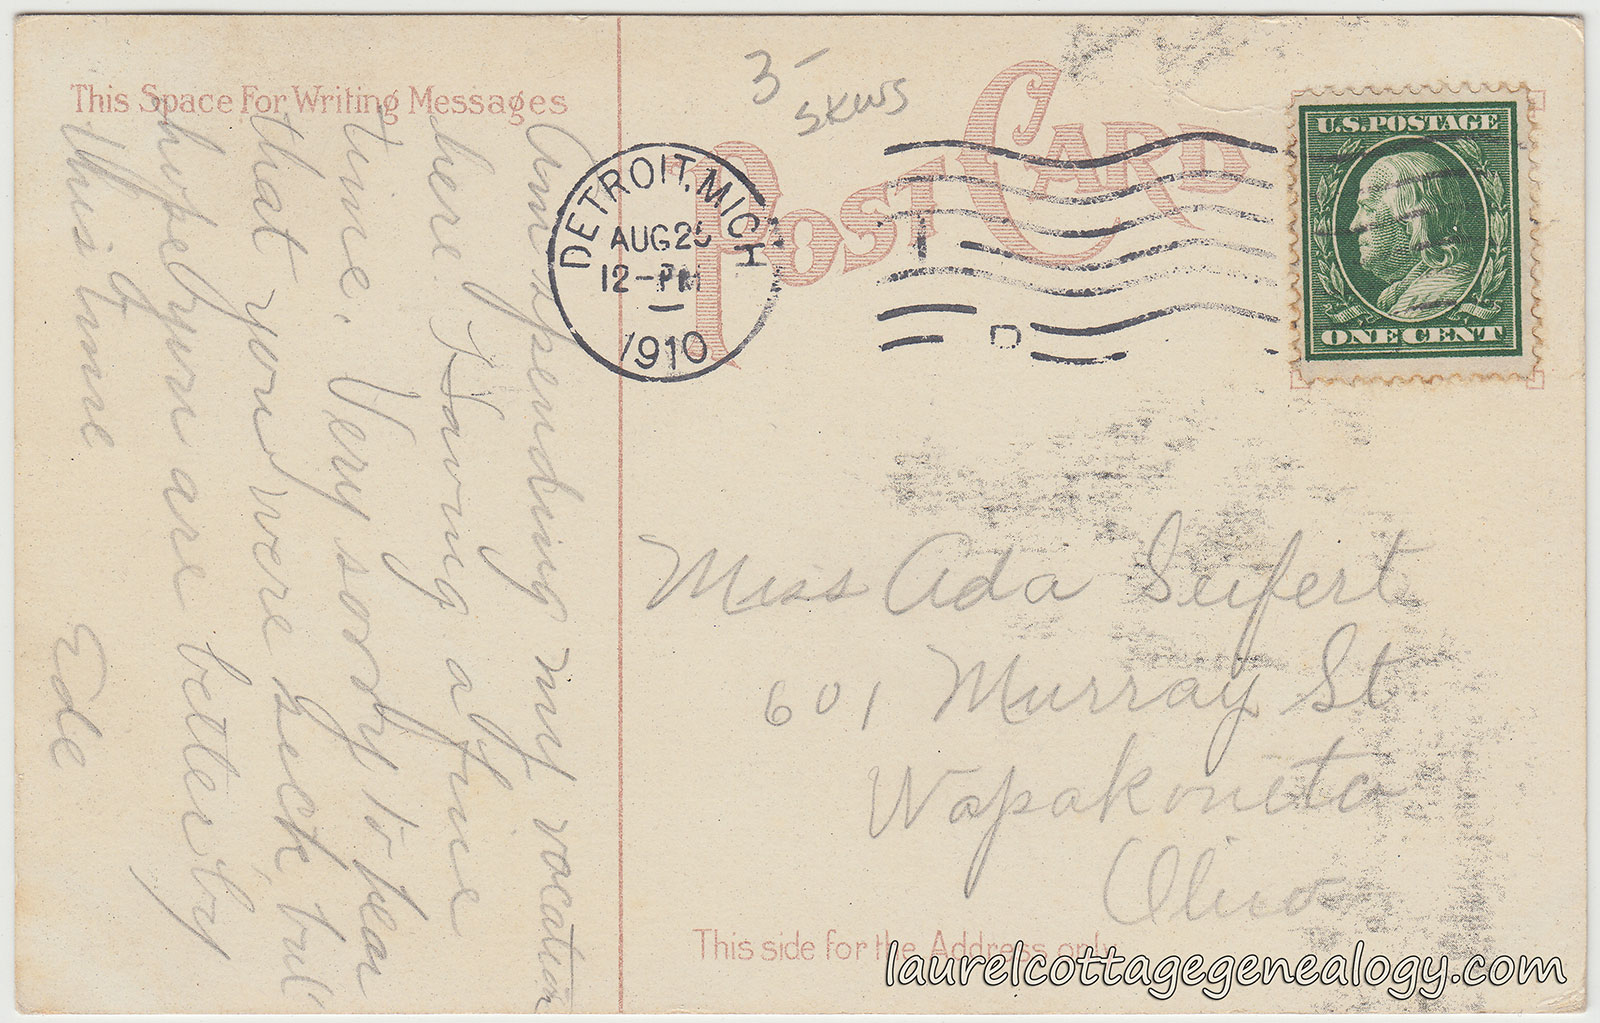 This Space For Writing Messages
Am spending my vacation
here. Having a fine
time. Very sorry to hear
that you were sick, but
hope you are better by
this time
Ede
POST CARD
3-
SKWS
DETROIT, MICH
AUG 25
12-PM
1910
D
U.S. POSTAGE
ONE CENT
Miss Ada Seifert
601 Murray St
Wapakoneta
Ohio
This side for the Address only
laurelcottagegenealogy.com